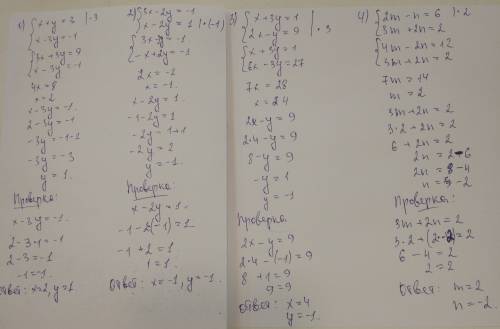 1) { x+y=3 | ·3
x-3y=-1
{ 3x+3y=9
x-3y=-1
4x=8
x=2
x-3y=-1.
2-3y=-1
-3y=-1-2
-3y=-3
y=1.
Проверка:
x-3y=-1.
2-3·1=-1
2-3=-1
-1=-1.
Ответ: x=2, y=1
2) { 3x-2y=-1
x-2y=1 | ·(-1)
{ 3x-2y=-1
-x+2y=-1
2x=-2
x=-1.
x-2y=1.
-1-2y=1
-2y=1+1
-2y=2
y=-1.
Проверка
x-2y=1.
-1-2(-1)=1
-1+2=1
1=1.
Ответ: x=-1, y=-1.
3) { x+3y=1
2x-y=9 | ·3
{ x+3y=1
6x-3y=27
7x=28
x=4
2x-y=9
2·4-y=9
8-y=9
-y=1
y=-1
Проверка
2x-y=9
2·4-(-1)=9
8+1=9
9=9
Ответ: x=4
y=-1.
4) { 2m-n=6 | ·2
3m+2n=2
{ 4m-2n=12
3m+2n=2
7m=14
m=2
3m+2n=2
3·2+2n=2
6+2n=2
2n=2-6
2n=-4
n=-2
Проверка:
3m+2n=2
3·2+(2·-2)=2
6-4=2
2=2
Ответ: m=2
n=-2.